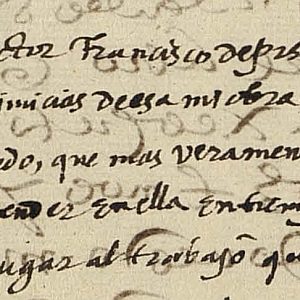 ctor Francisco de
imicias deesa mi obra
do, que mas veramen
ender en ella en tiem
ugar al trabajo qu